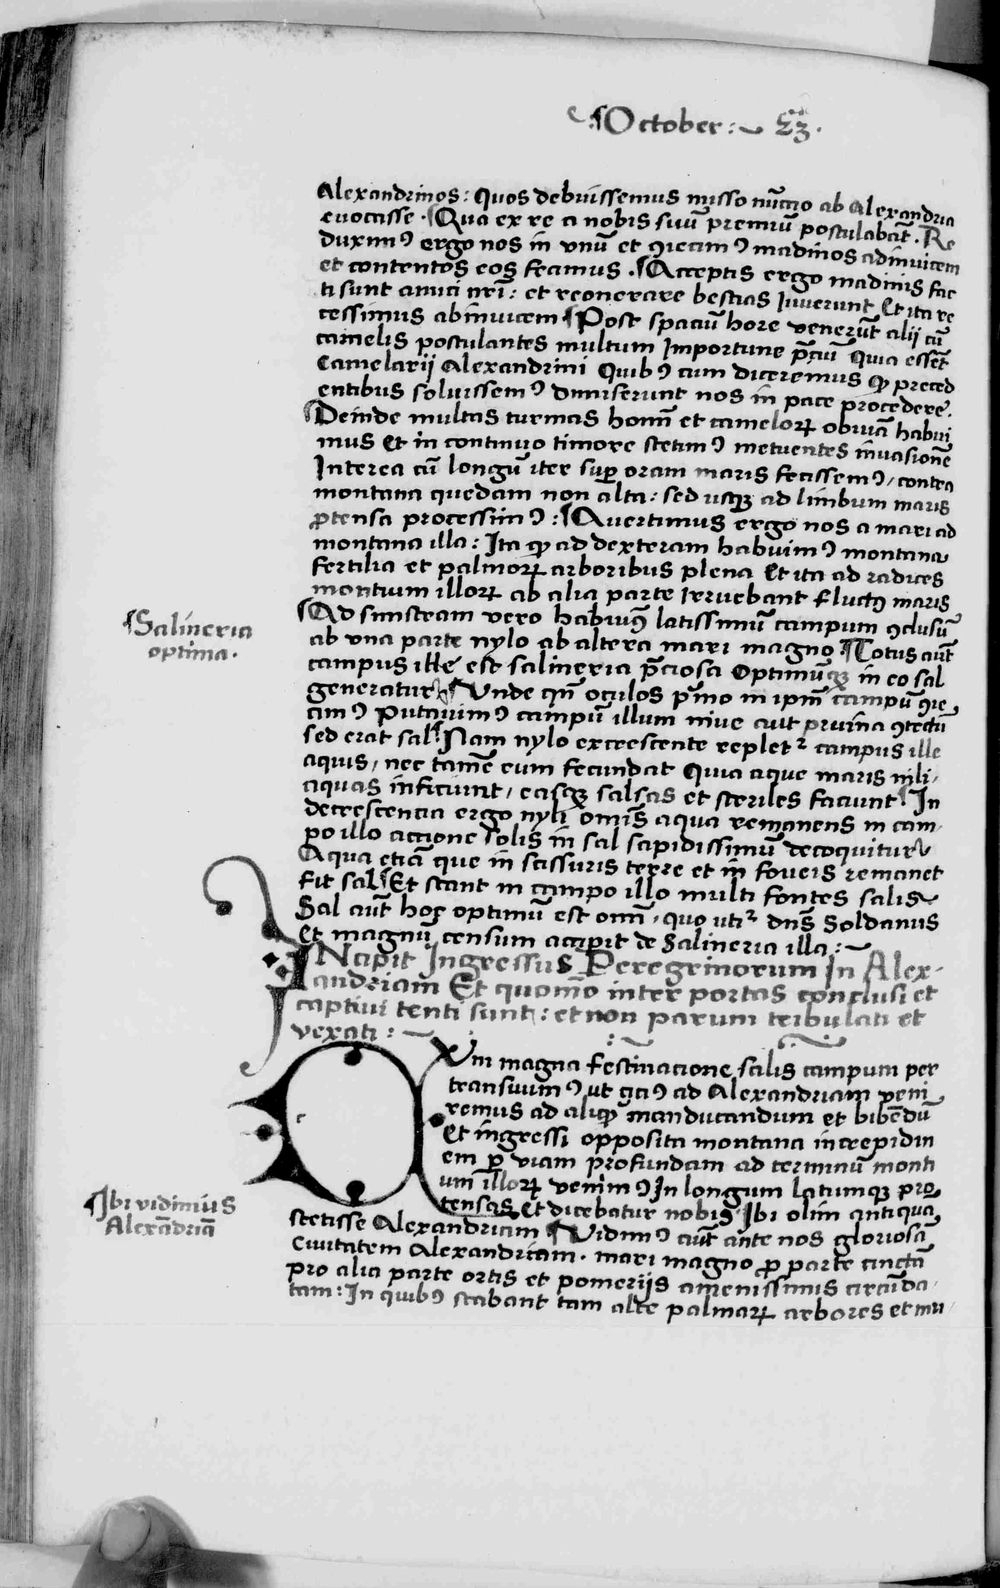 ¶October:~ 23.
Alexandrinos: Quos debuissemus misso nūctio ab Alexandria
evocasse. ¶Qua ex re a nobis suū premiū postulabāt. Re
duximꝰ ergo nos in vnū et ꝯiecimꝰ madinos adinvicem
et contentos eos fecimus. ¶Acceptis ergo madinis fac
ti sunt amici nr̄i: et reonerare bestias Iuverunt Et ita re
cessimus abinvicem ¶Post spaciū hore venerūt alii cū
camelis postulantes multum Importune p̄ciū Quia essēt
Camelarii Alexandrini Quibꝰ cum diceremus ꝙ preced
entibus solvissemꝰ dimiserunt nos in pace procedere.
¶Deinde multas turmas homī et cameloꝝ obviā habui
mus Et in continuo timore stetimꝰ metuentes invasionē
Interea cū longū iter suꝑ oram maris fecissemꝰ, contra
montana quedam non alta: sed usqꝫ ad limbum maris
ꝓtensa processimꝰ: ¶Avertimus ergo nos a mari ad
montana illa: Ita ꝙ ad dexteram habuimꝰ montana
fertilia et palmoꝝ arboribus plena Et ita ad radices
montium illoꝝ ab alia parte Irruebant fluctꝰ maris
¶Ad sinistram vero habuimꝰ latissimū campum ꝯclusū
ab vna parte nylo ab altera mari magno ¶Totus aūt
campus ille est salineria p̄ciosa Optimūqꝫ in eo sal
generatur ¶Vnde qn̄ oculos pͥmo in ipm̄ campū ꝯie
cimꝰ Putavimꝰ campū illum nive aut pruina ꝯtectū
sed erat sal ¶Nam nylo excrescente repletʳ campus ille
aquis, nec tamē eum fecundat Quia aque maris nili
aquas inficiunt, easqꝫ salsas et steriles faciunt ¶In
decrescencia ergo nyli omīs aqua remanens in cam
po illo accione solis in sal sapidissimū decoquitur
Aqua etiā que in scissuris terre et in foveis remanet
fit sal ¶Et stant in campo illo multi fontes salis
Sal aūt hoc optimū est omī, quo utiʳ dn̄s Soldanus
Et magnū censum accipit de Salineria illa:~
INcipit Ingressus Peregrinorum In Alex-
andriam Et quomō inter portas conclusi et
captivi tenti sunt: et non parum tribulati et
vexati:~
CVm magna festinacione salis campum per
transivimꝰ ut citiꝰ ad Alexandriam veni
remus ad aliqͦ manducandum et bibendū
Et ingressi opposita montana intrepidin
em ꝑ viam profundam ad terminū monti
um illoꝝ venimꝰ In longum latumqꝫ pro
tensas Et dicebatur nobis Ibi olim antiqua
stetisse Alexandriam ¶Vidimꝰ aūt ante nos gloriosā
Civitatem Alexandriam. mari magno ꝓ parte cinctā
pro alia parte ortis et pomeriis amenissimis circūda
tam: In quibꝰ stabant tam alte palmaꝝ arbores et mu
¶Salineria
optima.
¶Ibi vidimus
Alexādriā